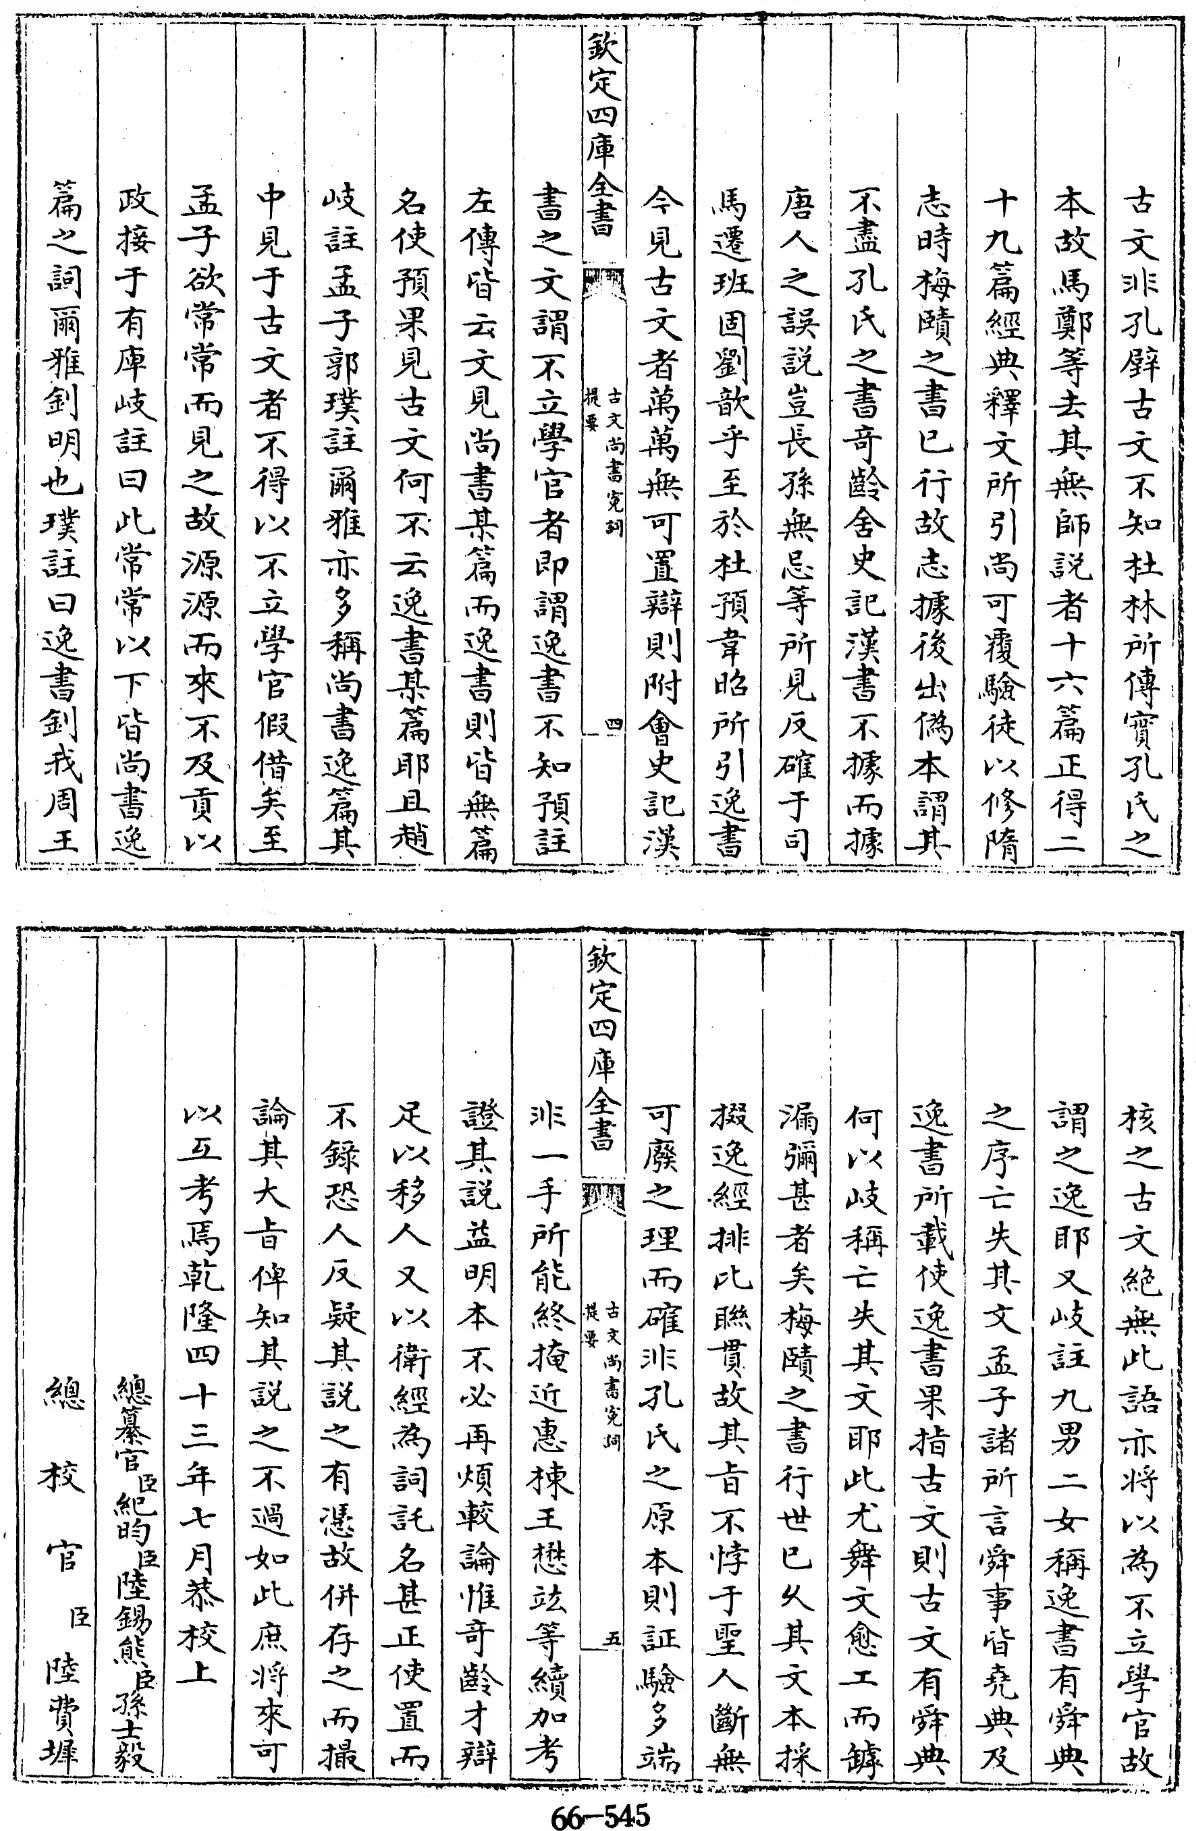 古文非孔壁古文不知杜林所傳實孔氏之
本故馬鄭等去其無師説者十六篇正得二
十九篇經典釋文所引尚可覆驗徒以修隋
志時梅賾之書已行故志據後出偽本謂其
不盡孔氏之書奇齡舍史記漢書不據而據
唐人之誤説豈長孫無忌等所見反確于司
馬遷班固劉歆乎至於杜預韋昭所引逸書
今見古文者萬萬無可置辯則附會史記漢
欽定四庫全書
古文尚書寃詞
提要
四
書之文謂不立學官者即謂逸書不知預註
左傳皆云文見尚書某篇而逸書則皆無篇
名使預果見古文何不云逸書某篇耶且趙
岐註孟子郭璞註爾雅亦多稱尚書逸篇其
中見于古文者不得以不立學官假借矣至
孟子欲常常而見之故源源而來不及貢以
政接于有庳岐註曰此常常以下皆尚書逸
篇之詞爾雅釗明也璞註曰逸書釗我周王
核之古文絶無此語亦將以為不立學官故
謂之逸耶又岐註九男二女稱逸書有舜典
之序亡失其文孟子諸所言舜事皆堯典及
逸書所載使逸書果指古文則古文有舜典
何以岐稱亡失其文耶此尤舞文愈工而罅
漏彌甚者矣梅賾之書行世已久其文本採
掇逸經排比聯貫故其旨不悖于聖人斷無
可廢之理而確非孔氏之原本則証驗多端
欽定四庫全書
古文尚書寃詞
提要
五
非一手所能終掩近惠棟王懋竑等續加考
證其説益明本不必再煩較論惟奇齡才辯
足以移人又以衛經為詞託名甚正使置而
不錄恐人反疑其説之有憑故併存之而撮
論其大旨俾知其説之不過如此庶將來可
以互考焉乾隆四十三年七月恭校上
總纂官臣紀昀臣陸錫熊臣孫士毅
總校官臣陸費墀
66-545